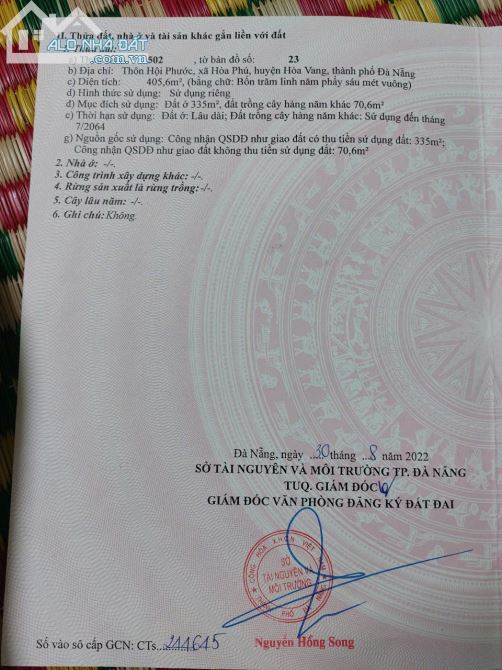 ALO NHÀ ĐẤT
.com.vn
II. Thửa đất, nhà ở và tài sản khác gắn liền với đất
502, tờ bản đồ số: 23
b) Địa chỉ: Thôn Hội Phước, xã Hòa Phú, huyện Hòa Vang, thành phố Đà Nẵng
c) Diện tích: 405,6m², (bằng chữ: Bốn trăm linh năm phẩy sáu mét vuông)
d) Hình thức sử dụng: Sử dụng riêng
đ) Mục đích sử dụng: Đất ở 335m², đất trồng cây hàng năm khác 70,6m²
e) Thời hạn sử dụng: Đất ở: Lâu dài; Đất trồng cây hàng năm khác: Sử dụng đến tháng
7/2064
g) Nguồn gốc sử dụng: Công nhận QSDĐ như giao đất có thu tiền sử dụng đất: 335m²;
Công nhận QSDĐ như giao đất không thu tiền sử dụng đất: 70,6m²
2. Nhà ở: -/-.
3. Công trình xây dựng khác: -/-.
4. Rừng sản xuất là rừng trồng: -/-.
5. Cây lâu năm: -/-.
6. Ghi chú: Không.
Đà Nẵng, ngày ...30 tháng ...8 năm 2022
SỞ TÀI NGUYÊN VÀ MÔI TRƯỜNG TP. ĐÀ NẴNG
TUQ. GIÁM ĐỐC
GIÁM ĐỐC VĂN PHÒNG ĐĂNG KÝ ĐẤT ĐAI
SỞ
TÀI NGUYÊN VÀ
MÔI TRƯỜNG
Nguyễn Hồng Song
Số vào sổ cấp GCN: CTs...211615